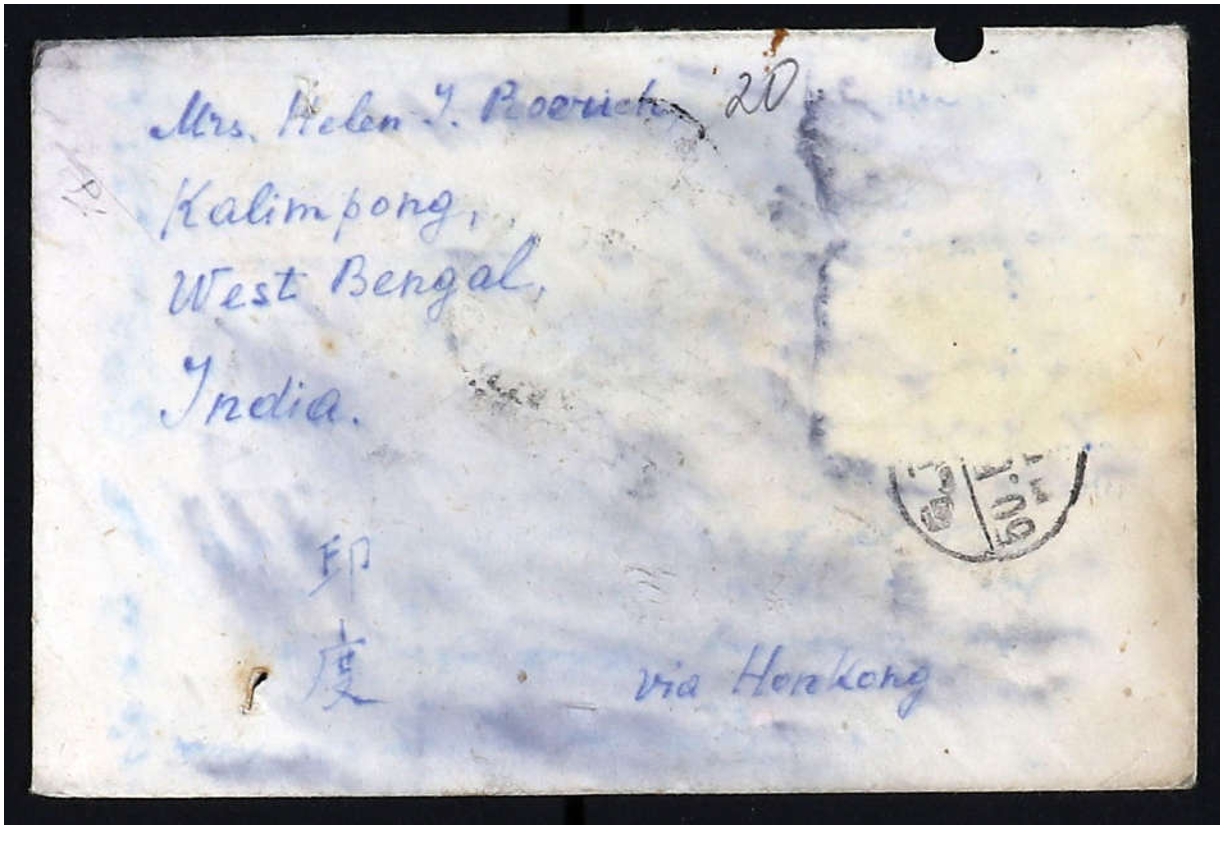 Mrs. Helen I. Roerich,
20
Kalimpong,
West Bengal,
India.
印度
via Honkong